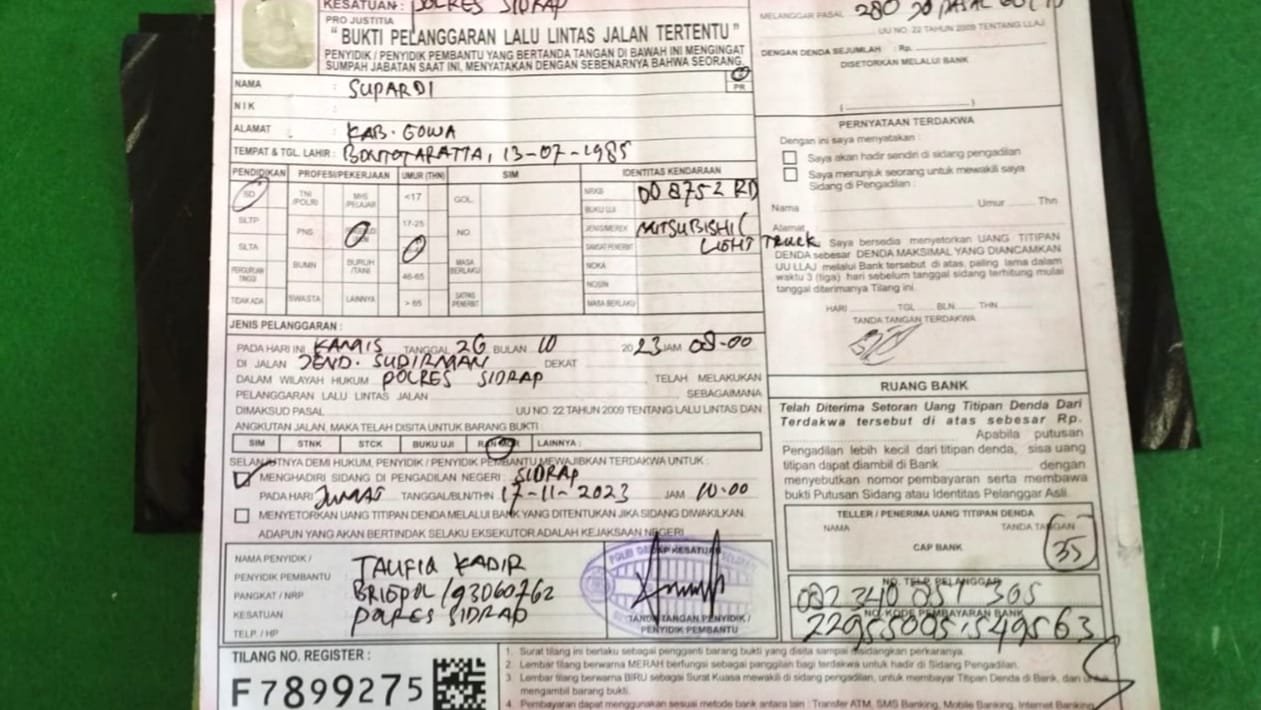 KESATUAN : POLRES SIDRAP
PRO JUSTITIA
" BUKTI PELANGGARAN LALU LINTAS JALAN TERTENTU "
PENYIDIK / PENYIDIK PEMBANTU YANG BERTANDA TANGAN DI BAWAH INI MENGINGAT
SUMPAH JABATAN SAAT INI, MENYATAKAN DENGAN SEBENARNYA BAHWA SEORANG.
NAMA : SUPARDI
PR
NIK :
ALAMAT : KAB. GOWA
TEMPAT & TGL. LAHIR : BONTOTARATTA, 13-07-1985
PENDIDIKAN PROFESI/PEKERJAAN UMUR (THN) SIM IDENTITAS KENDARAAN
SD TNI /POLRI MHS /PELAJAR <17 GOL. NRKB DD 8752 RD
BUKU UJI
SLTP PNS 17-25 NO. JENIS/MEREK MITSUBISHI (
LIGHT TRUCK
SLTA BUMN BURUH /TANI MASA BERLAKU SAMSAT PENERBIT
NOKA
PERGURUAN TINGGI 46-65 NOSIN
TIDAK ADA SWASTA LAINNYA > 65 SATPAS PENERBIT MASA BERLAKU
JENIS PELANGGARAN :
PADA HARI INI KAMIS TANGGAL 26 BULAN 10 2023 JAM 08-00
DI JALAN JEND. SUDIRMAN DEKAT
DALAM WILAYAH HUKUM POLRES SIDRAP TELAH MELAKUKAN
PELANGGARAN LALU LINTAS JALAN SEBAGAIMANA
DIMAKSUD PASAL UU NO. 22 TAHUN 2009 TENTANG LALU LINTAS DAN
ANGKUTAN JALAN, MAKA TELAH DISITA UNTUK BARANG BUKTI :
SIM STNK STCK BUKU UJI RANMOR LAINNYA :
SELANJUTNYA DEMI HUKUM, PENYIDIK / PENYIDIK PEMBANTU MEWAJIBKAN TERDAKWA UNTUK :
MENGHADIRI SIDANG DI PENGADILAN NEGERI : SIDRAP
PADA HARI JUMAT TANGGAL/BLN/THN 17-11-2023 JAM 10.00
MENYETORKAN UANG TITIPAN DENDA MELALUI BANK YANG DITENTUKAN JIKA SIDANG DIWAKILKAN.
ADAPUN YANG AKAN BERTINDAK SELAKU EKSEKUTOR ADALAH KEJAKSAAN NEGERI
NAMA PENYIDIK / PENYIDIK PEMBANTU : TAUFIQ KADIR
PANGKAT / NRP : BRIGPOL/93060762
KESATUAN : POLRES SIDRAP
TELP. / HP :
CAP KESATUAN
TANDA TANGAN PENYIDIK /
PENYIDIK PEMBANTU
TILANG NO. REGISTER :
F7899275
MELANGGAR PASAL 280
UU NO. 22 TAHUN 2009 TENTANG LLAJ
DENGAN DENDA SEJUMLAH : Rp.
DISETORKAN MELALUI BANK
PERNYATAAN TERDAKWA
Dengan ini saya menyatakan :
Saya akan hadir sendiri di sidang pengadilan
Saya menunjuk seorang untuk mewakili saya
Sidang di Pengadilan :
Nama Umur Thn
Alamat
Saya bersedia menyetorkan UANG TITIPAN
DENDA sebesar DENDA MAKSIMAL YANG DIANCAMKAN
UU LLAJ melalui Bank tersebut di atas, paling lama dalam
waktu 3 (tiga) hari sebelum tanggal sidang terhitung mulai
tanggal diterimanya Tilang ini.
HARI TGL BLN THN
TANDA TANGAN TERDAKWA
RUANG BANK
Telah Diterima Setoran Uang Titipan Denda Dari
Terdakwa tersebut di atas sebesar Rp.
Apabila putusan
Pengadilan lebih kecil dari titipan denda, sisa uang
titipan dapat diambil di Bank dengan
menyebutkan nomor pembayaran serta membawa
bukti Putusan Sidang atau Identitas Pelanggar Asli.
TELLER / PENERIMA UANG TITIPAN DENDA
NAMA TANDA TANGAN
CAP BANK
35
NO. TELP PELANGGAR
082 340 851 365
NO. KODE PEMBAYARAN BANK
1. Surat tilang ini berlaku sebagai pengganti barang bukti yang disita sampai disidangkan perkaranya.
2. Lembar tilang berwarna MERAH berfungsi sebagai panggilan bagi terdakwa untuk hadir di Sidang Pengadilan.
3. Lembar tilang berwarna BIRU sebagai Surat Kuasa mewakili di sidang pengadilan, untuk membayar Titipan Denda di Bank, dan untuk
mengambil barang bukti.
4. Pembayaran dapat menggunakan sesuai metode bank antara lain : Transfer ATM, SMS Banking, Mobile Banking, Internet Banking